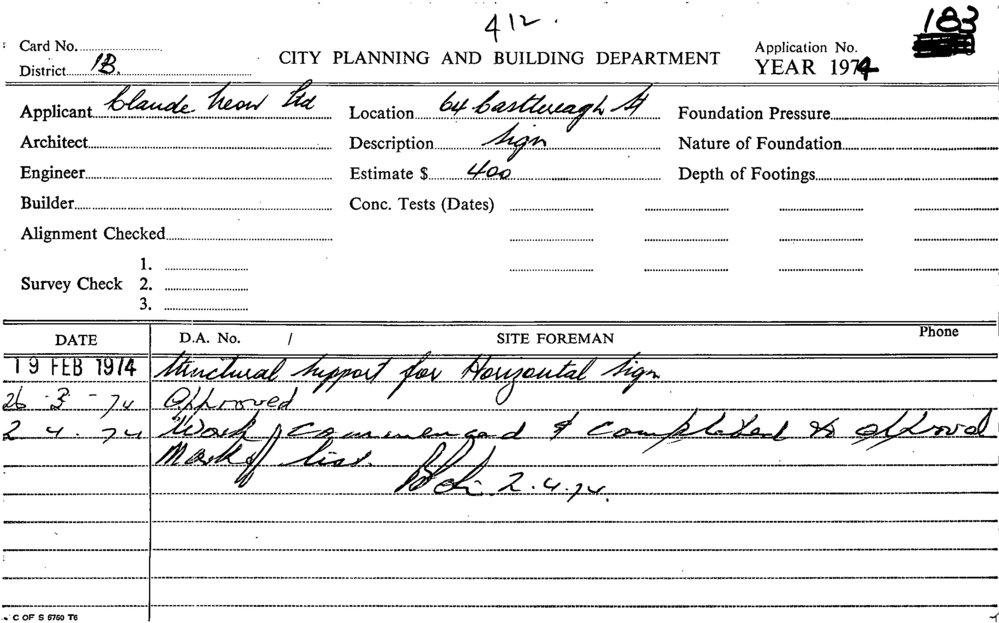 412.
183
Card No.
District 1B.
CITY PLANNING AND BUILDING DEPARTMENT
Application No.
YEAR 1974
Applicant Claude Neon Ltd
Location 64 Castlereagh St
Foundation Pressure
Architect
Description Sign
Nature of Foundation
Engineer
Estimate $ 400
Depth of Footings
Builder
Conc. Tests (Dates)
Alignment Checked
Survey Check
1.
2.
3.
DATE
D.A. No. /
SITE FOREMAN
Phone
19 FEB 1974 Structural support for Horizontal Sign
26-3-74 Approved
2.4.74 Work commenced & completed to approval
Mark off list.
2.4.74.
C OF S 5760 T6